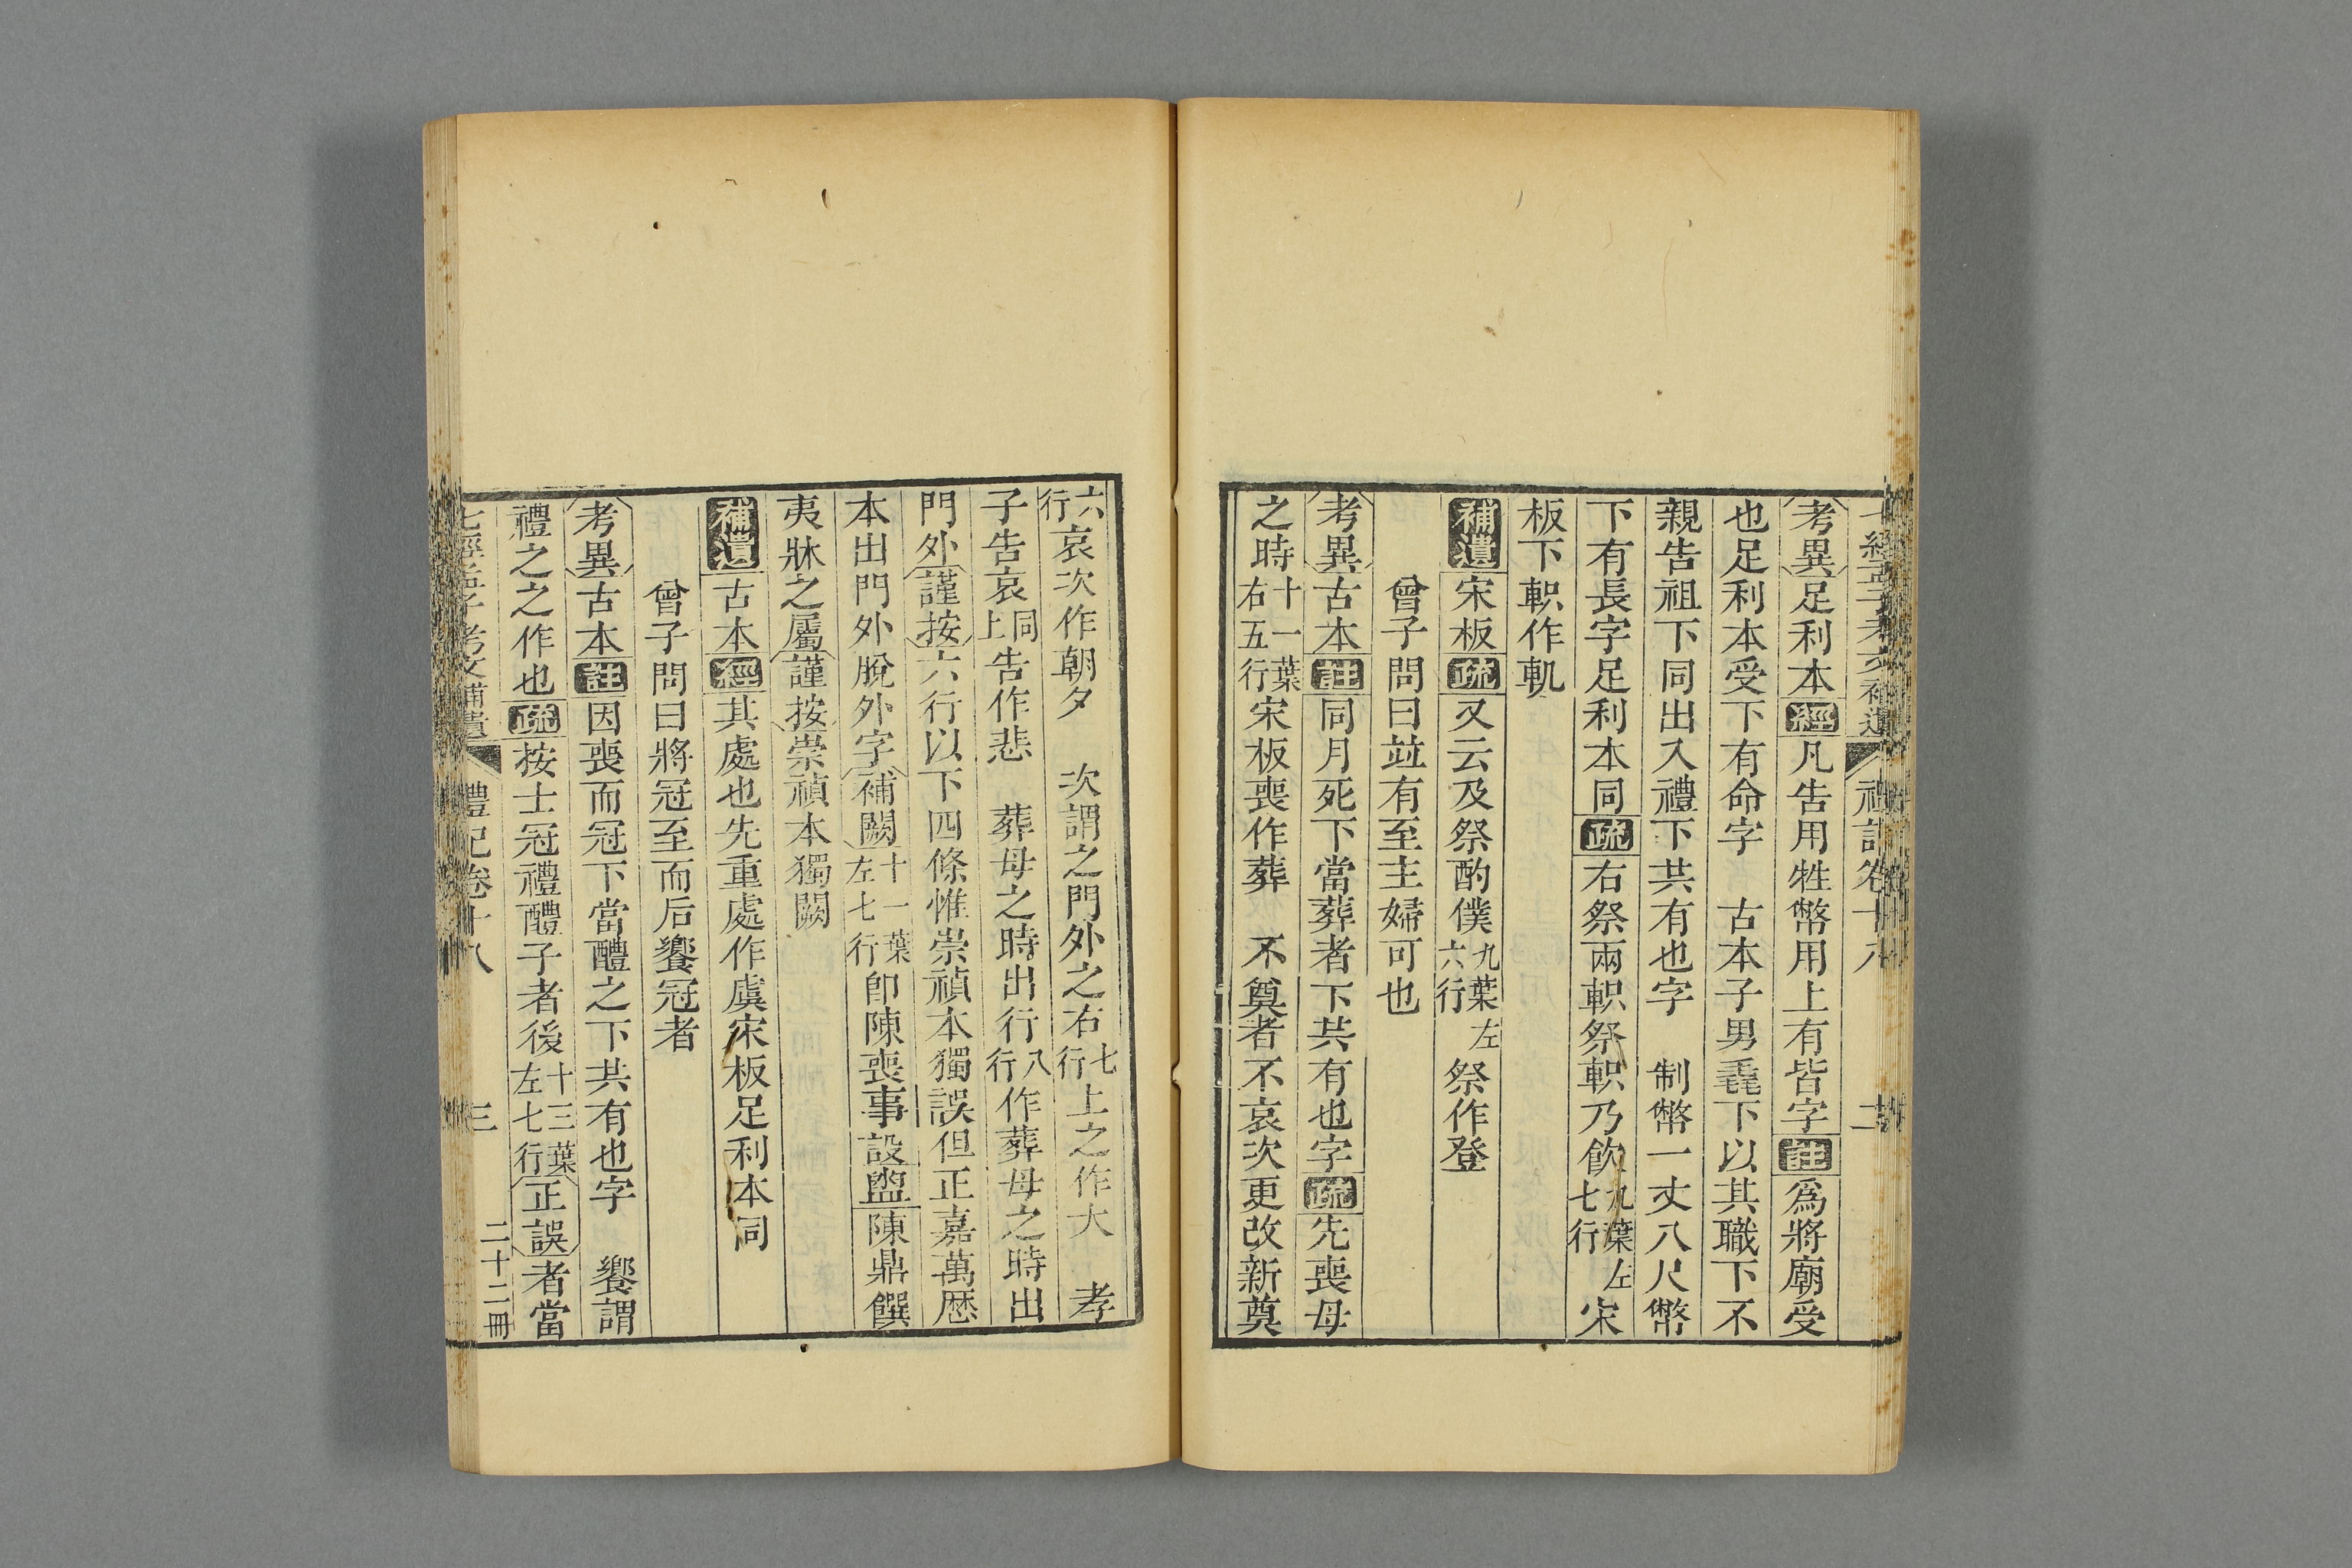 七經孟子考文補遺 禮記卷十八 二
考異足利本經凡告用牲幣用上有皆字註爲將廟受
也足利本受下有命字 古本子男毳下以其職下不
親告祖下同出入禮下共有也字 制幣一丈八尺幣
下有長字足利本同疏右祭兩軹祭軹乃飲九葉左七行宋
板下軹作軓
補遺宋板疏又云及祭酌僕九葉左六行祭作登
曾子問曰竝有至主婦可也
考異古本註同月死下當葬者下共有也字疏先喪母
之時十一葉右五行宋板喪作葬 不奠者不哀次更改新奠
六行哀次作朝夕 次謂之門外之右七行上之作大 孝
子告哀同上告作悲 葬母之時出行八行作葬母之時出
門外謹按六行以下四條惟崇禎本獨誤但正嘉萬歷
本出門外脫外字補闕十一葉左七行卽陳喪事設盥陳鼎饌
夷牀之屬謹按崇禎本獨闕
補遺古本經其處也先重處作虞宋板足利本同
曾子問曰將冠至而后饗冠者
考異古本註因喪而冠下當醴之下共有也字 饗謂
禮之之作也疏按士冠禮醴子者後十三葉左七行正誤者當
七經孟子考文補遺 禮記卷十八 三 二十二冊